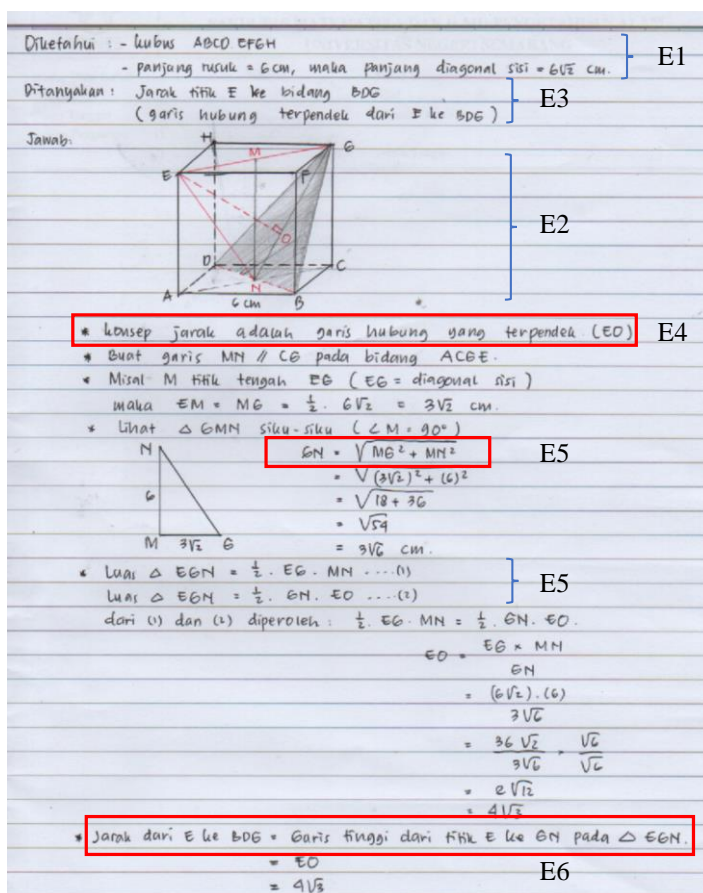 Diketahui : - kubus ABCD.EFGH
- panjang rusuk = 6 cm, maka panjang diagonal sisi = 6√2 cm.
E1
Ditanyakan : Jarak titik E ke bidang BDG
(garis hubung terpendek dari E ke BDG)
E3
Jawab:
H
G
M
E
F
O
E2
D
C
N
A
B
6 cm
* konsep jarak adalah garis hubung yang terpendek (EO)
E4
* Buat garis MN // CG pada bidang ACGE.
* Misal M titik tengah EG (EG = diagonal sisi)
maka EM = MG = 1/2 . 6√2 = 3√2 cm.
* Lihat △ GMN siku-siku (∠M = 90°)
N
6
M 3√2 G
GN = √MG² + MN²
E5
= √(3√2)² + (6)²
= √18 + 36
= √54
= 3√6 cm.
* Luas △ EGN = 1/2 . EG . MN ....(1)
Luas △ EGN = 1/2 . GN . EO ....(2)
E5
dari (1) dan (2) diperoleh : 1/2 . EG . MN = 1/2 . GN . EO.
EO = EG × MN / GN
= (6√2).(6) / 3√6
= 36√2 / 3√6 . √6 / √6
= 2√12
= 4√3
* Jarak dari E ke BDG = Garis tinggi dari titik E ke GN pada △ EGN.
= EO
E6
= 4√3